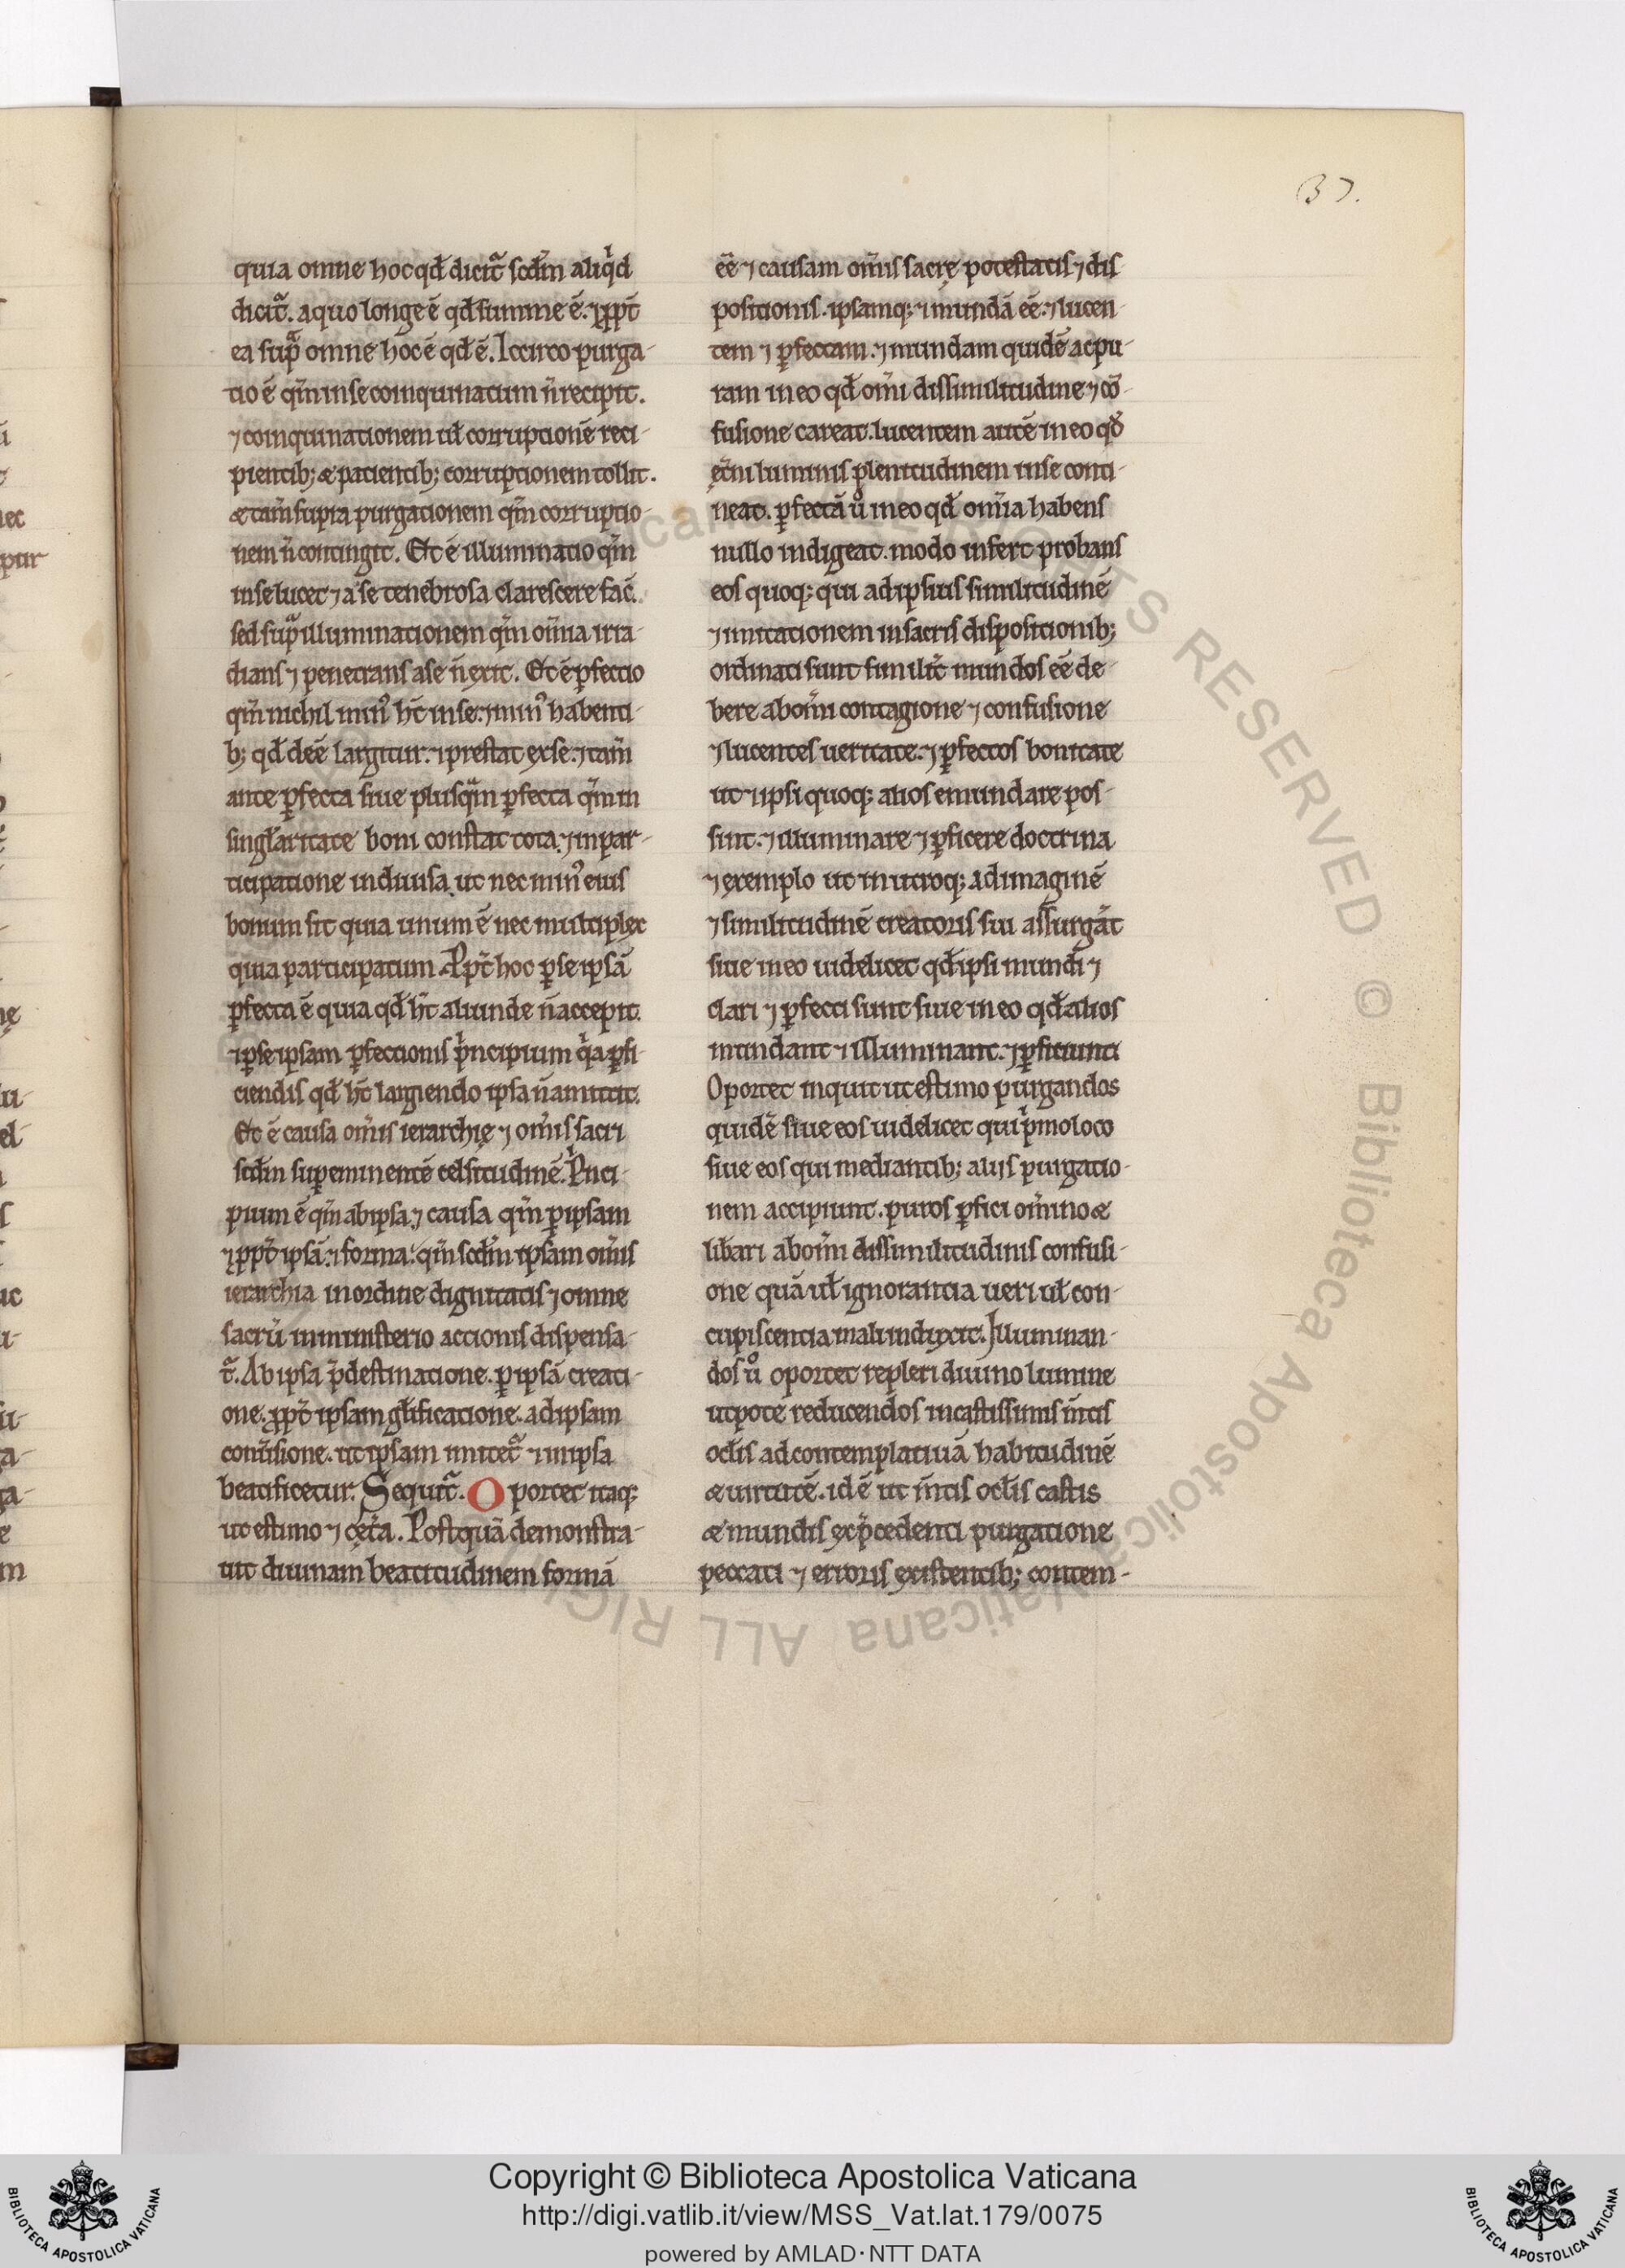 37.
quia omne hoc qd̄ dicit᷑ scd̄m aliqͥd
dicit᷑. a quo longe ē qd̄ summe ē. ⁊ ꝓpt̄
ea suꝑᷓ omne hoc ē qd̄ ē. Iccirco purga-
tio ē qm̄ in se coinquinatum n̄ recipit.
⁊ coinquinationem ul̄ corruptionē reci-
pientib; & patientib; corruptionem tollit.
& tam̄ supra purgationem qm̄ corruptio-
nem n̄ contingit. Et ē illuminatio qm̄
in se lucet ⁊ a se tenebrosa clarescere fac̄.
sed supᷓ illuminationem qm̄ om̄ia irra-
dians ⁊ penetrans a se n̄ exit. Et ē ꝑfectio
qm̄ nichil min᷒ ht̄ in se. ⁊ min᷒ habenti-
b; qd̄ deē largitur. ⁊ prestat ex se. ⁊ tam̄
ante ꝑfecta siue plusqᷓm ꝑfecta qm̄ in
singl̄aritate boni constat tota. ⁊ in par-
ticipatione indiuisa. ut nec min᷒ eius
bonum sit quia unum ē nec multiplex
quia participatum. Ppt̄ hoc ꝑ se ipsā
ꝑfecta ē quia qd̄ ht̄ aliunde n̄ accepit.
⁊ ꝑ se ipsam ꝑfectionis pͥncipium qͥa ꝑfi-
ciendis qd̄ ht̄ largiendo ipsa n̄ amittit.
Et ē causa om̄is ierarchię ⁊ om̄is sacri
scd̄m suꝑeminentē celsitudinē. Pͥnci-
pium ē qm̄ ab ipsa. ⁊ causa qm̄ ꝑ ipsam
⁊ ꝓpt̄ ipsā. ⁊ forma. qm̄ scd̄m ipsam om̄is
ierarchia in ordine dignitatis ⁊ omne
sacrū in ministerio actionis dispensa-
t᷑. Ab ipsa p̄destinatione. ꝑ ipsā creati-
one. ꝓpt̄ ipsam gl̄ificatione. ad ipsam
conūsione. ut ipsam imitet᷑ ⁊ in ipsa
beatificetur. Sequit᷑. Oportet itaq;
ut estimo ⁊ cęt̄a. Postquā demonstra-
uit diuinam beatitudinem formā
eē ⁊ causam om̄is sacrę potestatis ⁊ dis
positionis. ipsamq; ⁊ mundā eē. ⁊ lucen-
tem ⁊ ꝑfectam. ⁊ mundam quidē ac pu-
ram in eo qd̄ om̄i dissimilitudine ⁊ cō-
fusione careat. lucentem autē in eo qd̄
ęt̄ni luminis plenitudinem in se conti-
neat. ꝑfectā ůo in eo qd̄ om̄ia habens
nullo indigeat. modo infert probans
eos quoq; qui ad ipsius similitudinē
⁊ imitationem in sacris dispositionib;
ordinati sunt similit̄ mundos eē de-
bere ab om̄i contagione ⁊ confusione
⁊ lucentes ueritate. ⁊ ꝑfectos bonitate
ut ⁊ ipsi quoq; alios emundare pos-
sint. ⁊ illuminare ⁊ ꝑficere doctrina
⁊ exemplo ut in utroq; ad imaginē
⁊ similitudinē creatoris sui assurgāt
siue in eo uidelicet qd̄ ipsi mundi ⁊
clari ⁊ ꝑfecti sunt siue in eo qd̄ alios
mundant ⁊ illuminant. ⁊ ꝑficiunt
Oportet inquit ut estimo purgandos
quidē siue eos uidelicet qui pͥmo loco
siue eos qui mediantib; aliis purgatio-
nem accipiunt. puros ꝑfici om̄ino &
lib̄ari ab om̄i dissimilitudinis confusi-
one quā ul̄ ignorantia ueri ul̄ con-
cupiscentia mali induxit. Illuminan-
dos ůo oportet repleri diuino lumine
utpote reducendos in castissimis m̄tis
ocl̄is ad contemplatiuā habitudinē
& uirtutē. id ē ut m̄tis ocl̄is castis
& mundis ex p̄cedenti purgatione
peccati ⁊ erroris existentib; contem-
Copyright © Biblioteca Apostolica Vaticana
http://digi.vatlib.it/view/MSS_Vat.lat.179/0075
powered by AMLAD·NTT DATA
BIBLIOTECA APOSTOLICA VATICANA
BIBLIOTECA APOSTOLICA VATICANA